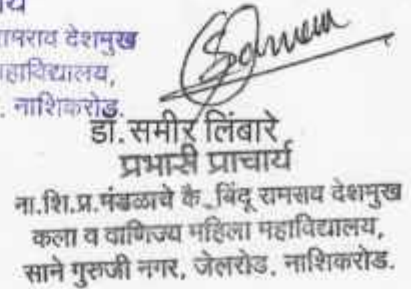 रामराव देशमुख
महाविद्यालय,
. नाशिकरोड.
डॉ.समीर लिंबारे
प्रभारी प्राचार्य
ना.शि.प्र.मंडळाचे कै. बिंदू रामराव देशमुख
कला व वाणिज्य महिला महाविद्यालय,
साने गुरुजी नगर, जेलरोड, नाशिकरोड.